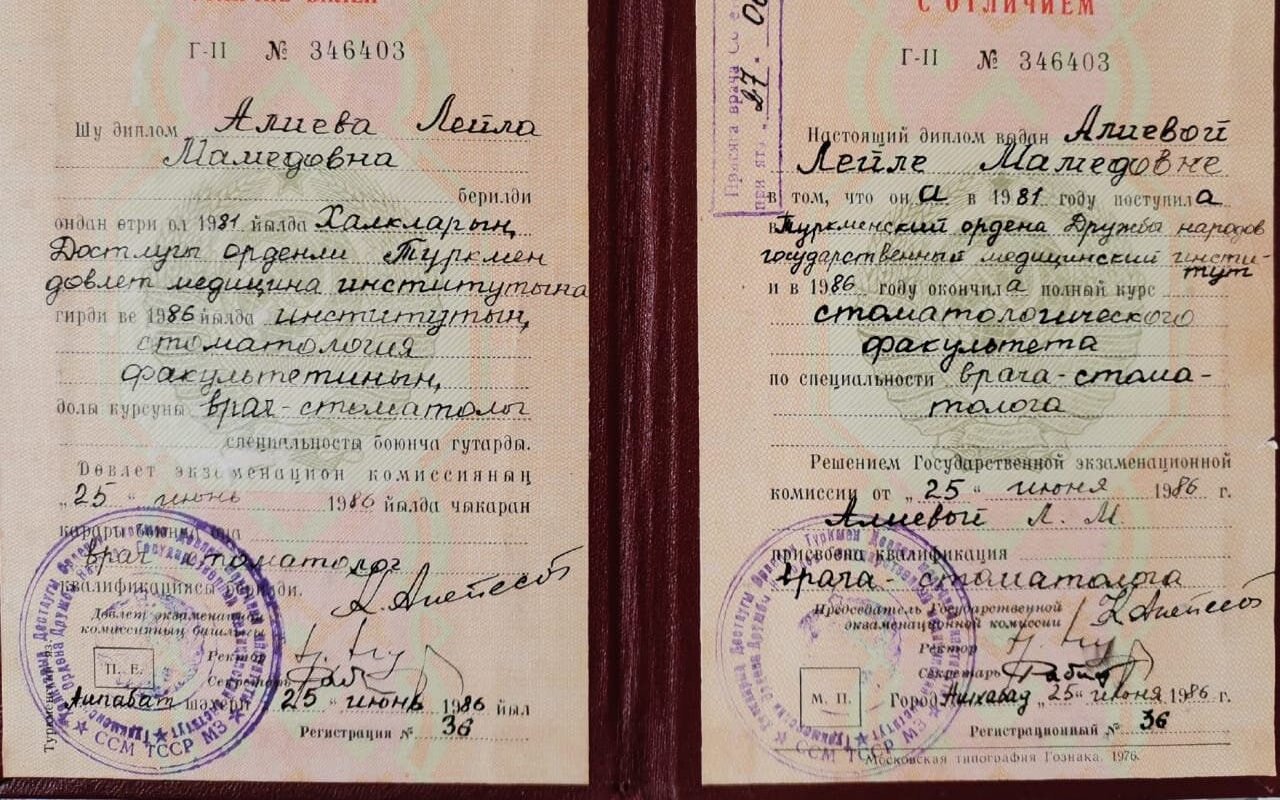 Г-II № 346403
Шу диплом Алиева Лейла
Мамедовна
берилди
ондан өтри ол 1981 йылда Халкларың
Достлугы орденли Түркмен
дөвлет медицина институтына
гирди ве 1986 йылда институтың
стоматология
факультетиның
долы курсуны врач-стоматолог
специальносты боюнча гутарды.
Дөвлет экзаменацион комиссияның
„25" июнь 1986 йылда чыкаран
карары боюнча она
врач стоматолог
квалификациясы берилди.
Дөвлет экзаменацион
комиссияның башлыгы
Ректор
Секретарь
П. Е.
Ашгабат шәхери „25" июнь 1986 йыл
Регистрацион № 36
С ОТЛИЧИЕМ
Г-II № 346403
Присяга врача Со
27. 06
Настоящий диплом выдан Алиевой
Лейле Мамедовне
в том, что он а в 1981 году поступила
в Туркменский ордена Дружбы народов
государственный медицинский инсти-
тут
и в 1986 году окончила полный курс
стоматологического
факультета
по специальности врача-стома-
толога
Решением Государственной экзаменационной
комиссии от „25" июня 1986 г.
Алиевой Л. М.
присвоена квалификация
врача-стоматолога
Председатель Государственной
экзаменационной комиссии
Ректор
Секретарь
М. П.
Город Ашхабад „25" июня 1986 г.
Регистрационный № 36
ССМ ТССР МЗ
ССМ ТССР МЗ
Московская типография Гознака. 1976.